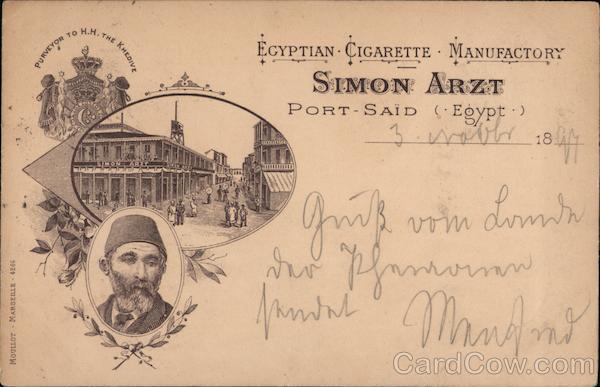 PURVEYOR TO H.H. THE KHEDIVE
EGYPTIAN · CIGARETTE · MANUFACTORY
SIMON ARZT
PORT-SAÏD (· Egypt ·)
3. 1897
SIMON ARZT
Gruß vom Lande
der Pharaonen
sendet Manfred
MOULLOT - MARSEILLE - 4266
CardCow.com